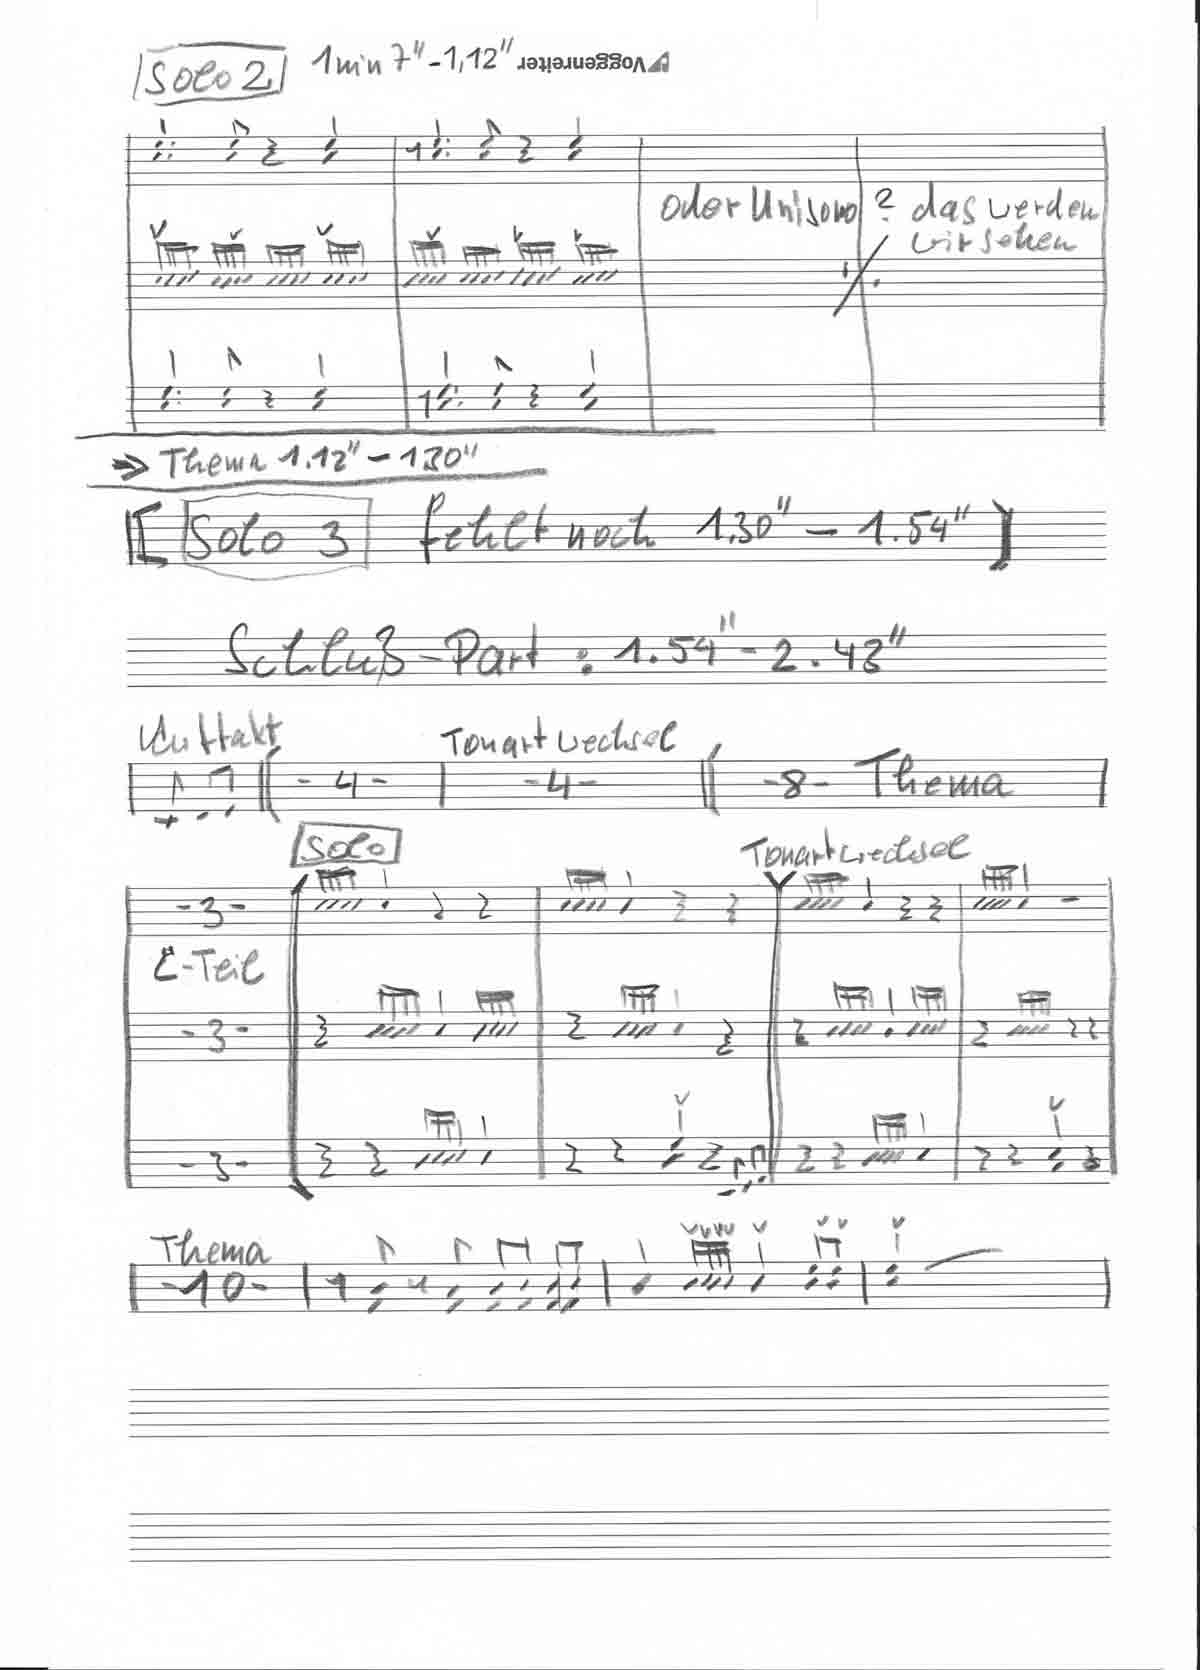 Solo 2 1min 7" - 1,12" Voggenreiter
oder Unisono ? das werden
wir sehen
⇒ Thema 1.12" - 1.30"
[ Solo 3 fehlt noch 1,30" - 1.54" ]
Schluß-Part : 1.54" - 2.43"
Auftakt Tonartwechsel
-4- -4- -8- Thema
Solo Tonartwechsel
-3-
C-Teil
-3-
-3-
Thema
-10-